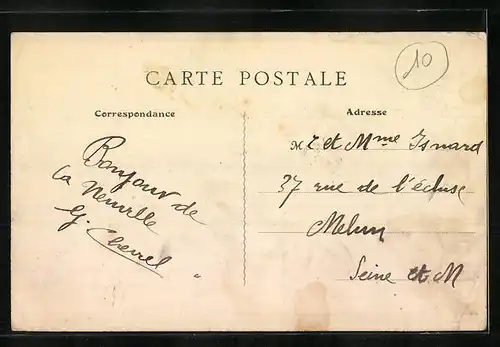 10
CARTE POSTALE
Correspondance
Adresse
Bonjour de
la Neuville
g. Chevrel
Mr et Mme Isnard
37 rue de l'écluse
Melun
Seine et M